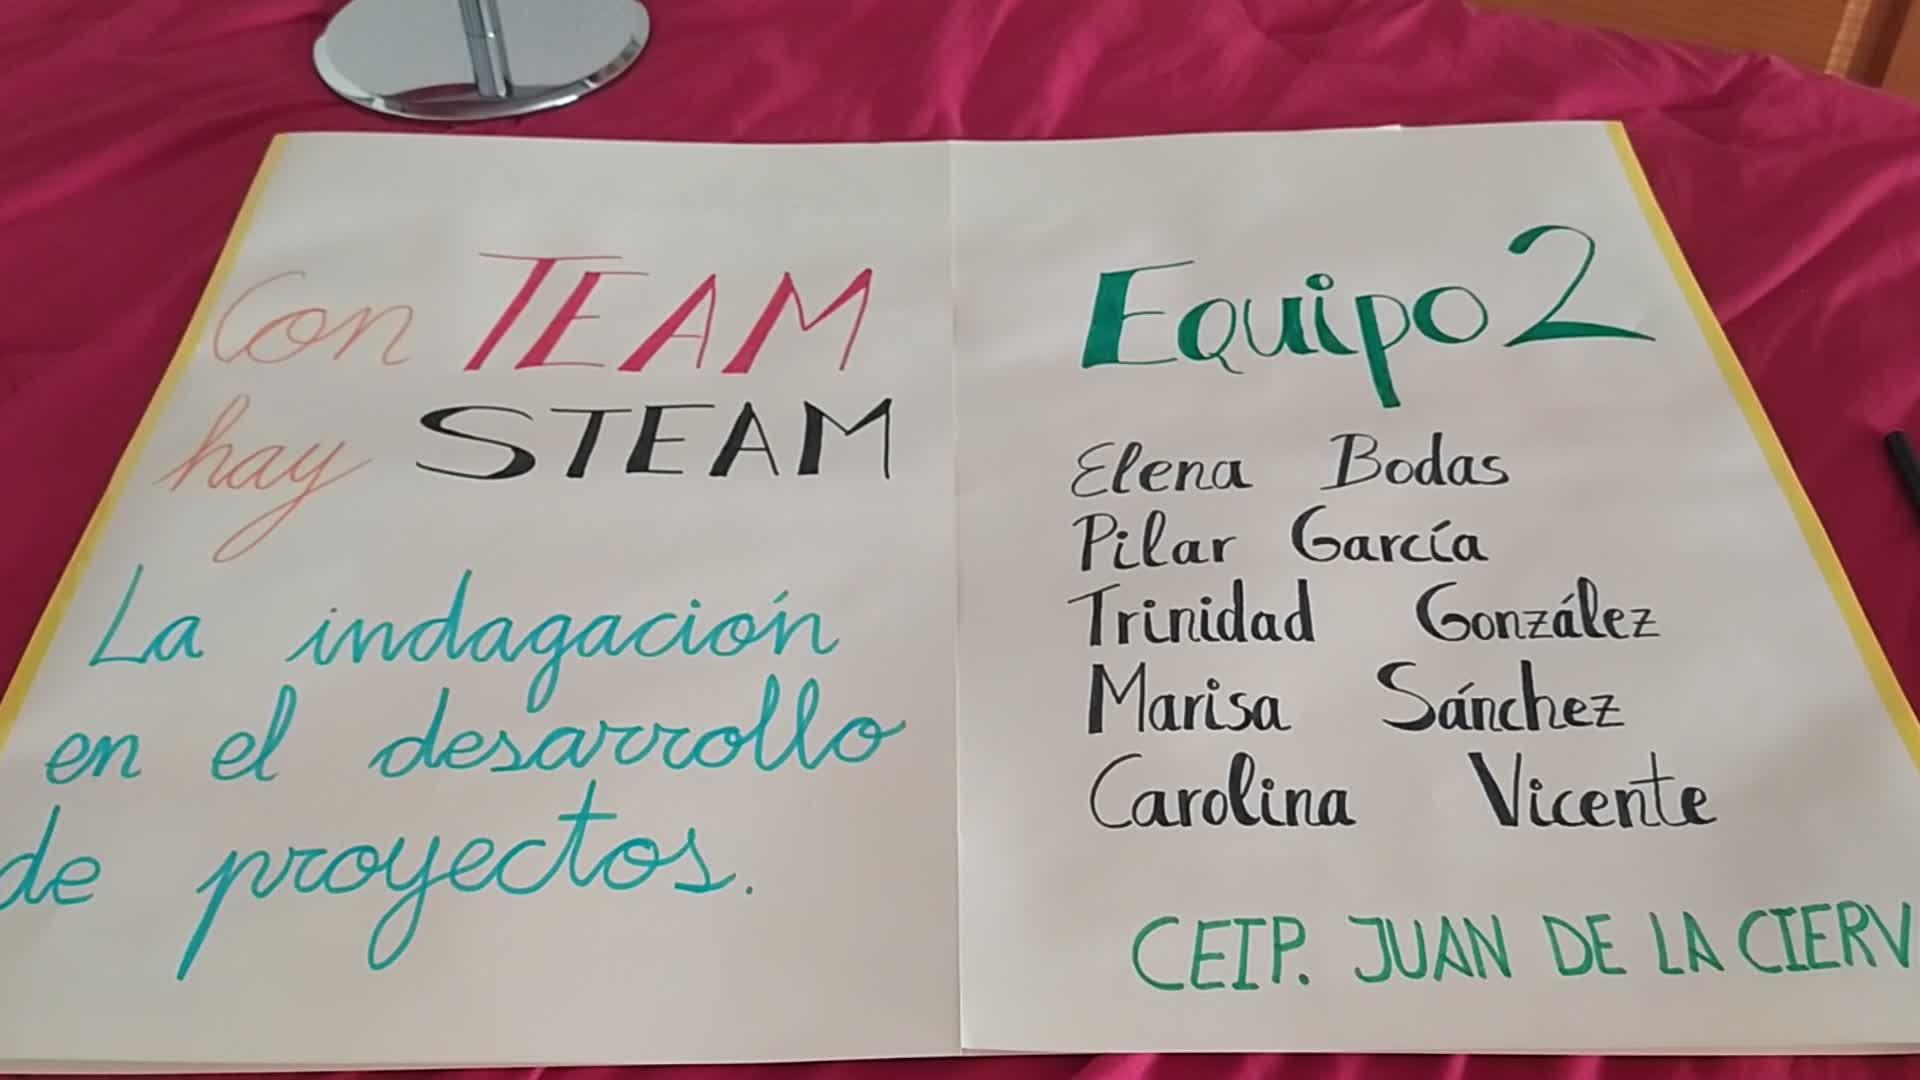 Con TEAM
hay STEAM
La indagación
en el desarrollo
de proyectos.
Equipo 2
Elena Bodas
Pilar García
Trinidad González
Marisa Sánchez
Carolina Vicente
CEIP. JUAN DE LA CIERV